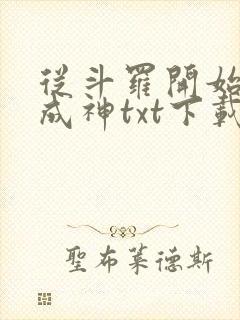 從斗羅開始
成神txt下載
聖布萊德斯